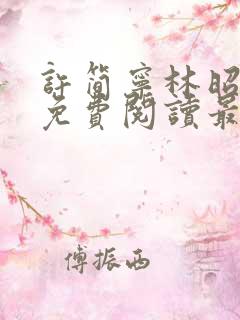 許簡寧林昭
免費閱讀最
傅振西